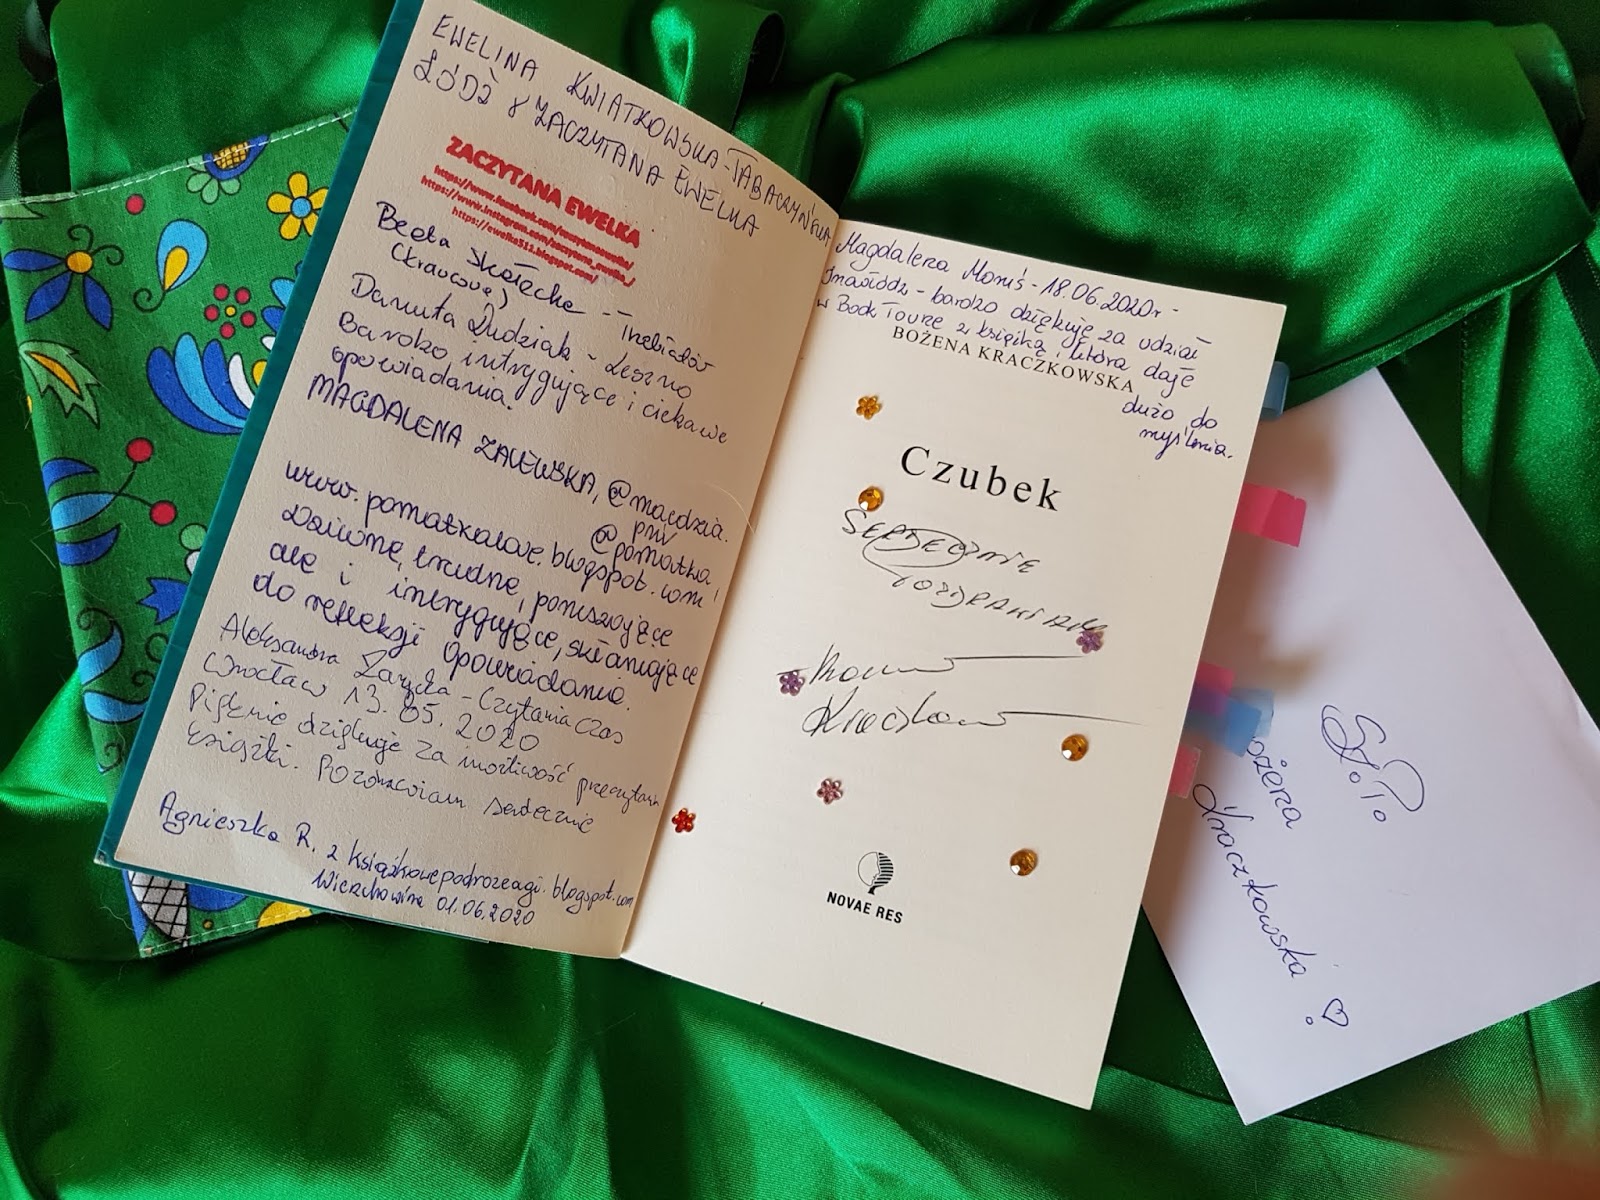 EWELINA KWIATKOWSKA-TABACZYŃSKA
ŁÓDŹ ZACZYTANA EWELKA
ZACZYTANA EWELKA
https://www.facebook.com/zaczytanaewelka/
https://www.instagram.com/zaczytana_ewelka_/
https://ewelka512.blogspot.com/
Beata Skałecka - Trebiadów
Danuta Dudziak - Leszno
Bardzo intrygujące i ciekawe
opowiadania.
MAGDALENA ZALEWSKA, @magdzia.
pnv
@pomatka
www.pomatkalove.blogspot.com
Dziwne, trudne, poruszające
ale i intrygujące, skłaniające
do refleksji opowiadania.
Aleksandra - Czytania czas
Wrocław 13.05.2020
Pięknie dziękuje za możliwość przeczytania
książki. Pozdrawiam serdecznie
Agnieszka R. z książkowepodrozeagi.blogspot.com
Wierzchowina 01.06.2020
Magdalena - 18.06.2020r -
Inowłódz - bardzo dziękuję za udział
w Book Tourze z książką, która daje
dużo do
myślenia.
BOŻENA KRACZKOWSKA
Czubek
SERDECZNIE
POZDRAWIAM
NOVAE RES
ożena
Kraczkowska